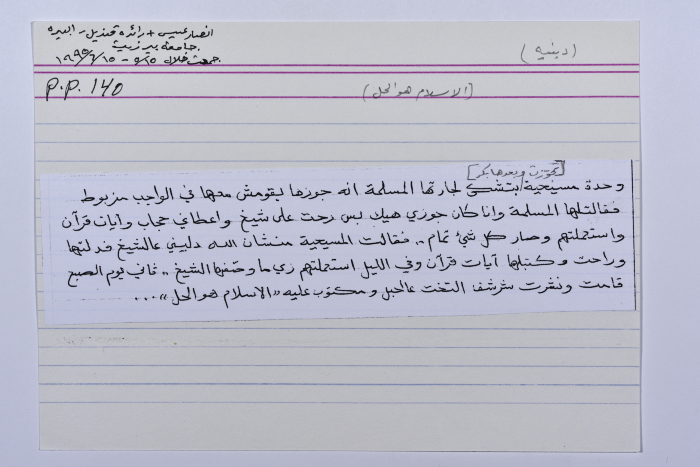 انصار عيسى + رائدة قنديل - البيره
جامعة بيرزيت
جمعت خلال ٥/١٥ - ١٩٩٥/٦/١٥
(دينيه)
P.P. 140
(الاسلام هو الحل)
[تجوّزت وبعدها بكر]
وحدة مسيحية بتشكي لجارتها المسلمة انه جوزها بقومش معها في الواجب مزبوط
فقالتلها المسلمة وانا كان جوزي هيك بس رحت على شيخ واعطاني حجاب وآيات قرآن
واستعملتهم وصار كل شيء تمام .. فقالت المسيحية منشان الله دليني عالشيخ فدلتها
وراحت وكتبلها آيات قرآن وفي الليل استعملتهم زي ما وصفها الشيخ .. ثاني يوم الصبح
قامت ونشرت شرشف التخت عالحبل ومكتوب عليه "الاسلام هو الحل" ...